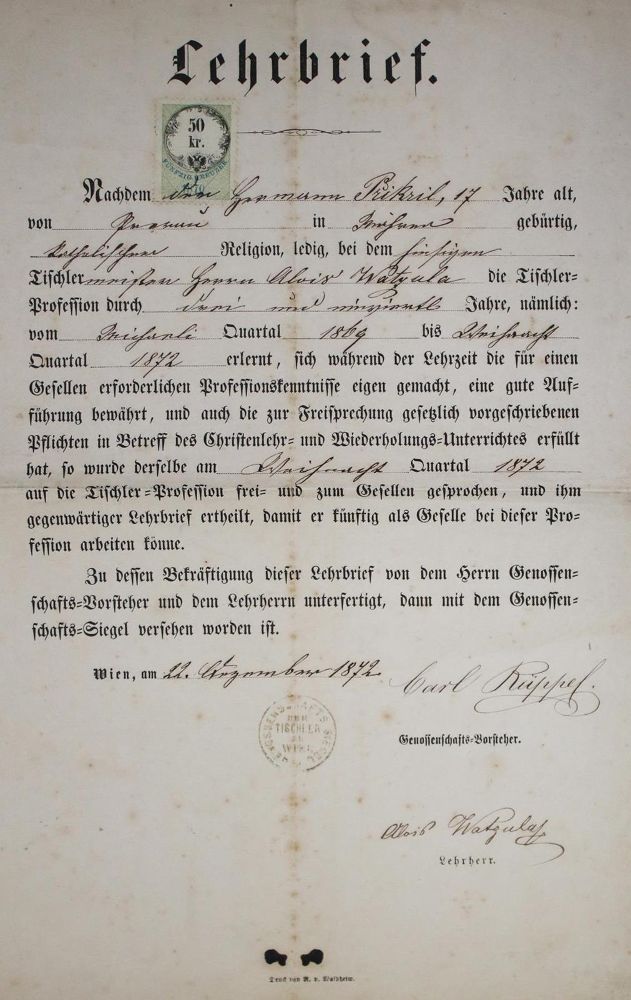 Lehrbrief.
50
kr.
FÜNFZIG KREUZER
1870
Nachdem der Hermann Přikril, 17 Jahre alt,
von Prerau in Mähren gebürtig,
katholischer Religion, ledig, bei dem hiesigen
Tischlermeister Herrn Alois Watzula die Tischler-
Profession durch drei und einviertl Jahre, nämlich:
vom Michaeli Quartal 1869 bis Weihnacht
Quartal 1872 erlernt, sich während der Lehrzeit die für einen
Gesellen erforderlichen Professionskenntnisse eigen gemacht, eine gute Auf-
führung bewährt, und auch die zur Freisprechung gesetzlich vorgeschriebenen
Pflichten in Betreff des Christenlehr- und Wiederholungs-Unterrichtes erfüllt
hat, so wurde derselbe am Weihnacht Quartal 1872
auf die Tischler-Profession frei- und zum Gesellen gesprochen, und ihm
gegenwärtiger Lehrbrief ertheilt, damit er künftig als Geselle bei dieser Pro-
fession arbeiten könne.
Zu dessen Bekräftigung dieser Lehrbrief von dem Herrn Genossen-
schafts-Vorsteher und dem Lehrherrn unterfertigt, dann mit dem Genossen-
schafts-Siegel versehen worden ist.
Wien, am 22. Dezember 1872
Carl Rüppel.
GENOSSENSCHAFTS SIEGEL
DER
TISCHLER
IN
WIEN
Genossenschafts-Vorsteher.
Alois Watzula
Lehrherr.
Druck von R. v. Waldheim.